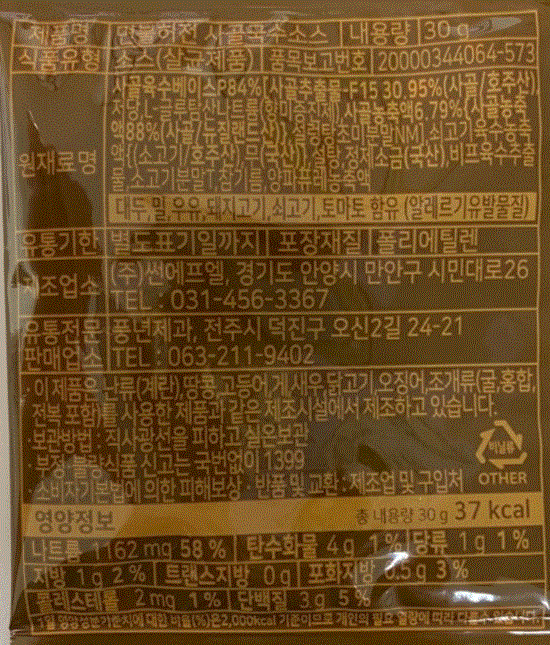 제품명 만불허전 사골육수소스 내용량 30 g
식품유형 소스(살균제품) 품목보고번호 20000344064-573
원재료명 사골육수베이스P84%{사골추출물-F15 30.95%(사골/호주산),
전당,L-글루탐산나트륨(향미증진제),사골농축액6.79%{사골농축
액88%(사골/뉴질랜드산)}, 설렁탕조미분말NM}, 쇠고기육수농축
액{(소고기/호주산), 무(국산)}, 설탕, 정제소금(국산), 비프육수추출
물, 소고기분말T, 참기름, 양파퓨레농축액
대두, 밀, 우유, 돼지고기, 쇠고기, 토마토 함유 (알레르기유발물질)
유통기한 별도표기일까지 포장재질 폴리에틸렌
조업소 (주)씬에프엘, 경기도 안양시 만안구 시민대로26
TEL : 031-456-3367
유통전문 풍년제과, 전주시 덕진구 오신2길 24-21
판매업소 TEL : 063-211-9402
· 이 제품은 난류(계란), 땅콩, 고등어, 게, 새우, 닭고기, 오징어, 조개류(굴, 홍합,
전복 포함)를 사용한 제품과 같은 제조시설에서 제조하고 있습니다.
· 보관방법 : 직사광선을 피하고 실온보관
· 부정·불량식품 신고는 국번없이 1399
· 소비자기본법에 의한 피해보상 · 반품 및 교환 : 제조업 및 구입처
비닐류
OTHER
영양정보 총 내용량 30 g 37 kcal
나트륨 1162 mg 58 % 탄수화물 4 g 1 % 당류 1 g 1 %
지방 1 g 2 % 트랜스지방 0 g 포화지방 0.5 g 3 %
콜레스테롤 2 mg 1 % 단백질 3 g 5 %
1일 영양성분기준치에 대한 비율(%)은 2,000kcal 기준이므로 개인의 필요 열량에 따라 다를 수 있습니다.